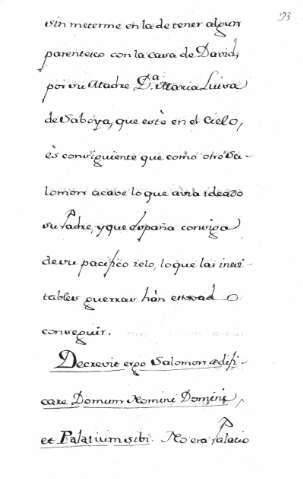 93
sin meterme en la de tener algun
parentesco con la casa de David,
por su Madre D.ª Maria Luisa
de Saboya, que estè en el Cielo,
ès consiguiente que como otro Sa-
lomon acave lo que avia ideado
su Padre, y que españa consiga
de su pacifico zelo, lo que las inevi-
tables guerras hán
conseguir.
Decrevit ergo Salomon ædifi-
care Domum Nomini Domini,
et Palatium sibi. No era Palacio